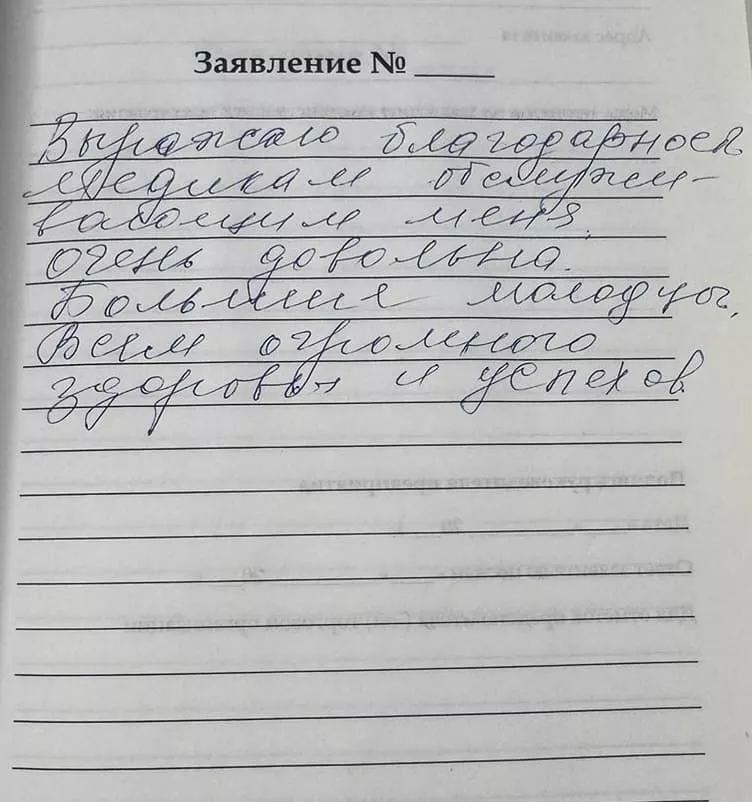 Заявление № _____
Выражаю благодарность
медикам обслужи-
вающим меня,
очень довольна.
Большие молодцы,
Всем огромного
здоровья и успехов